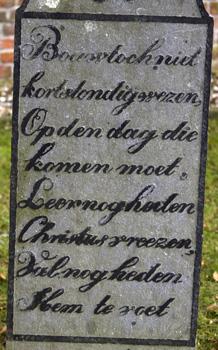 Bouw toch niet
kortstondig wezen,
Op den dag die
komen moet.
Leer nog heden
Christus vreezen,
Val nog heden
Hem te voet